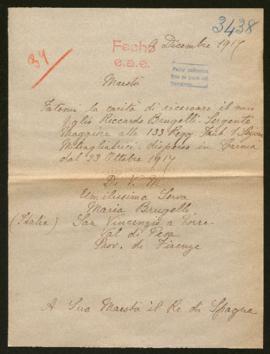 3438
9 Dicembre 1917
Fecha
e.a.e.
34
Maestà
Fatemi la carità di ricercare il mio
figlio Riccardo Brugelli. Sergente
Maggiore alla 133 Regg Fant
Mitragliatrici disperso in
dal 23 Ottobre 1917
Di V. M.
Umilissima Serva
Maria Brugelli
(Italia) San Vincenzio a Torri
Val di Pesa
Prov. di Firenze
A Sua Maestà il Re di Spagna